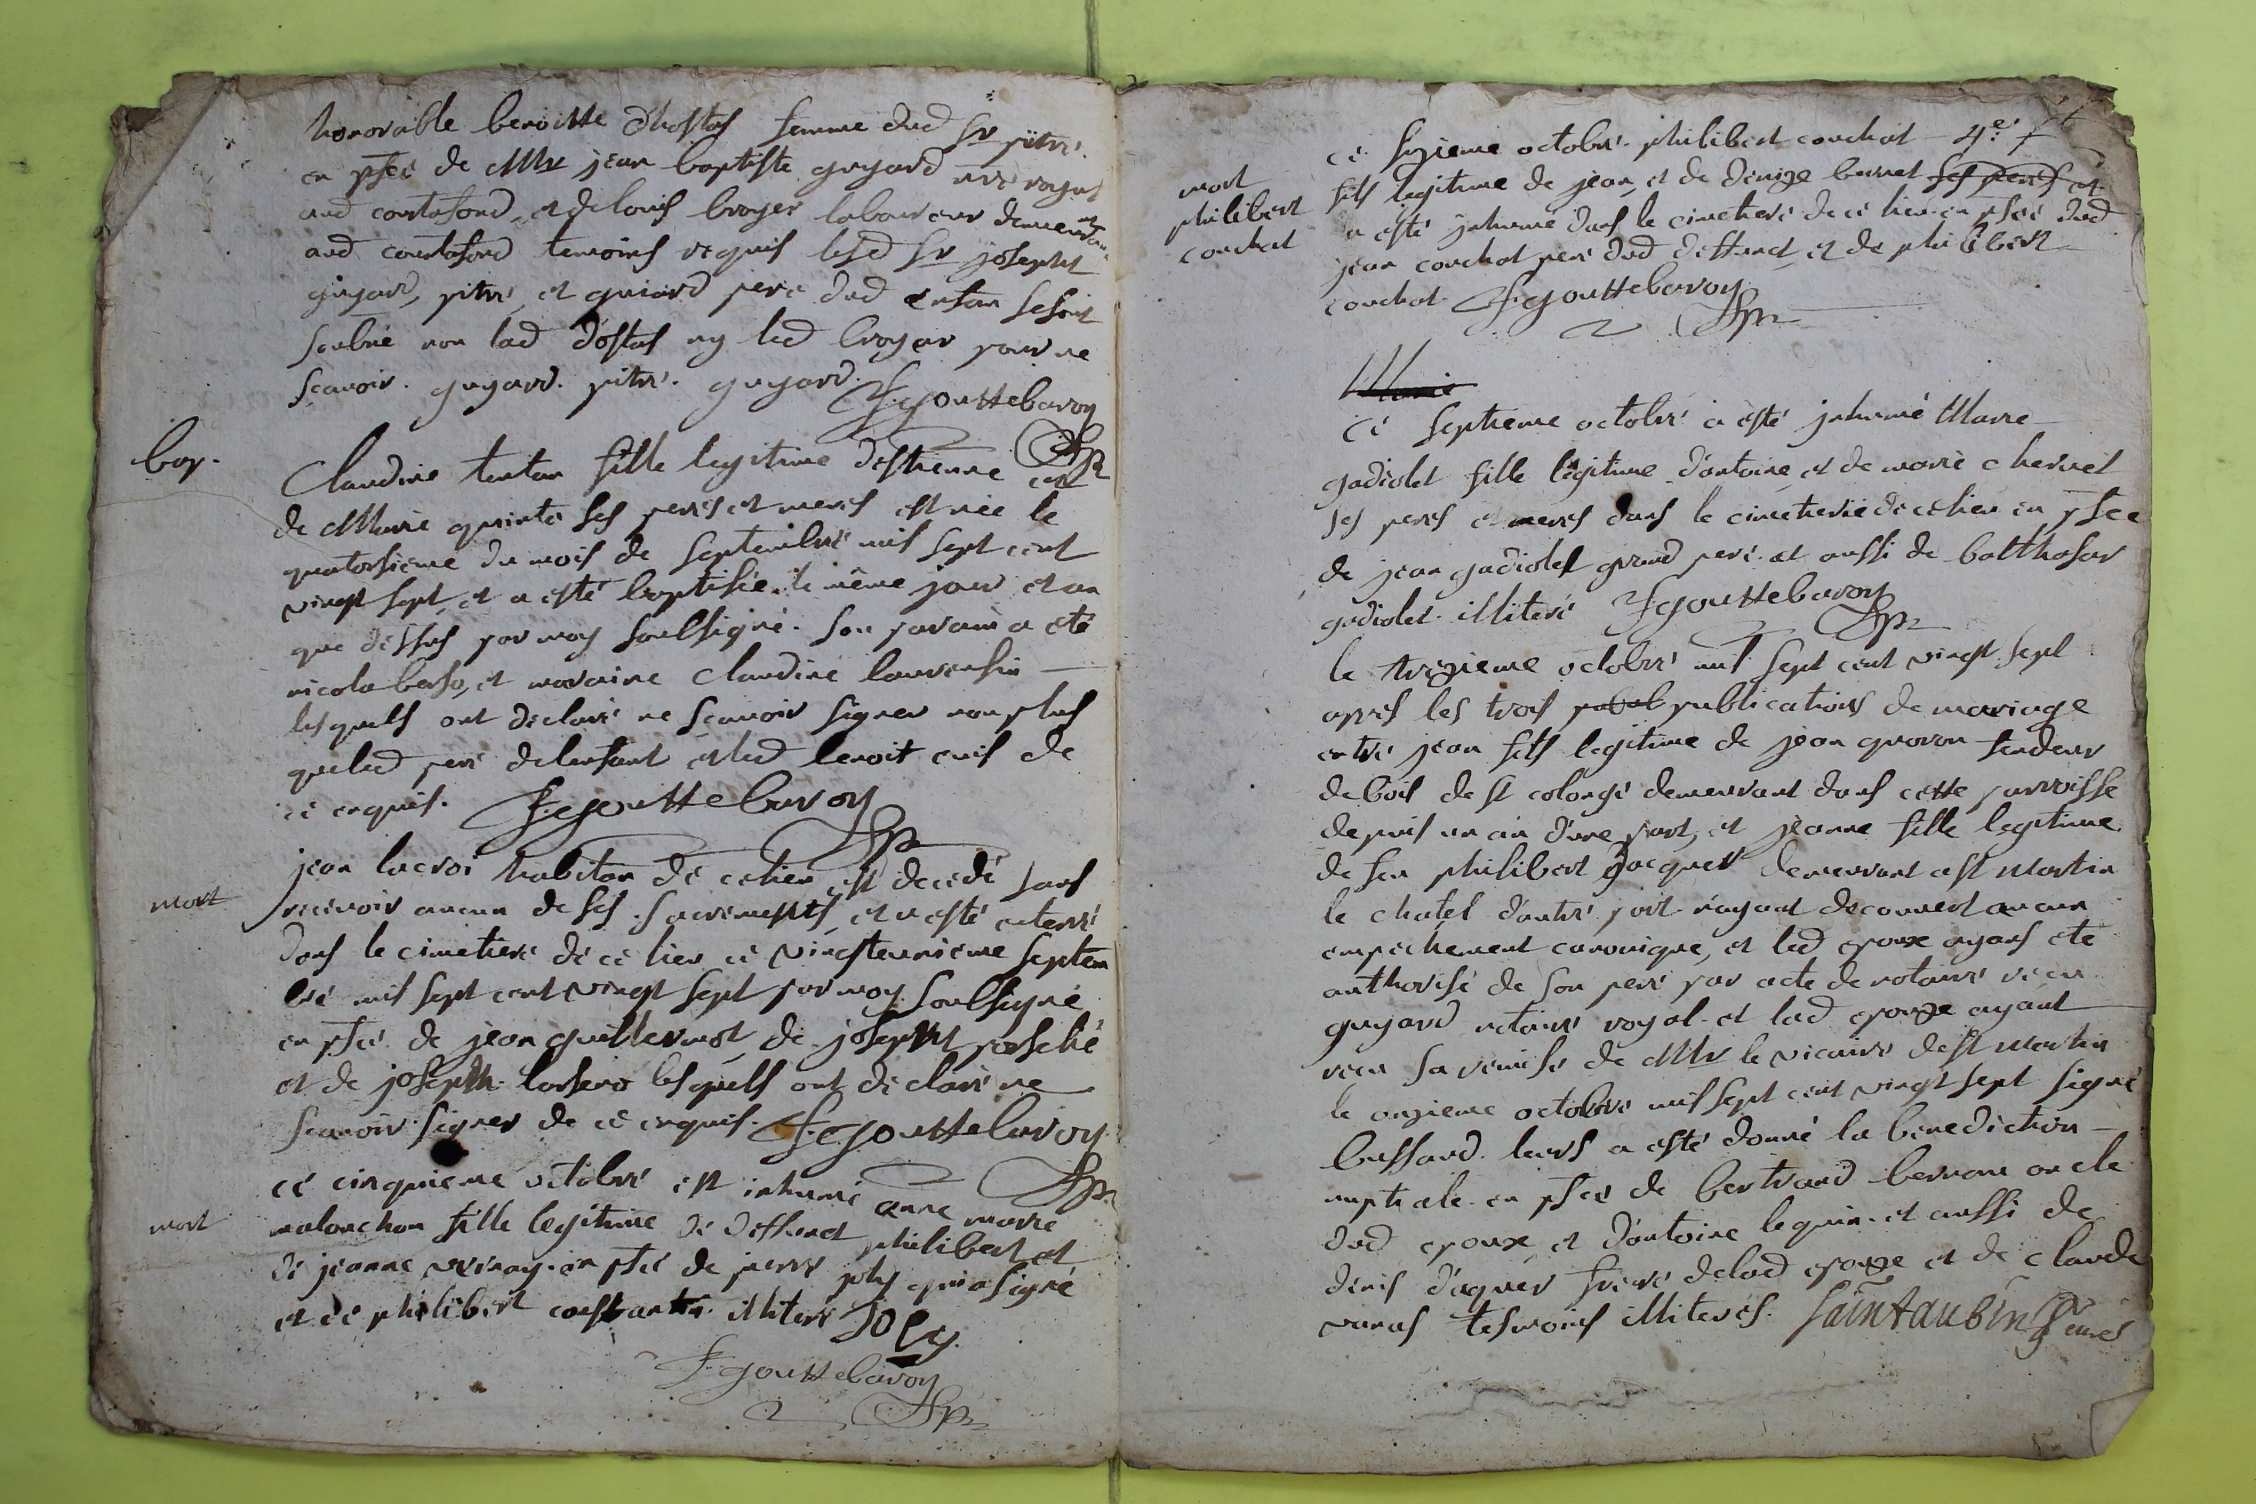 honorable benoitte d'hostas femme dud Sr pitre.
en pñce de Mre jean baptiste guyard nre royal
aud courtafond, et de louis broyer laboureur demeurant
aud courtafond temoins requis lesd Sr joseph
guyard, pitre, et guiard pere dud enfan se sont
soubné non lad d'ostas ny led broyer pour ne
scavoir. guyard. pitre. guyard.
F. gouttebaron
bap.
Claudine tentan fille legitime d'estienne et
de Marie quinte ses peres et meres est née le
quatorsieme du mois de septembre mil sept cent
vingt sept et a esté baptisée le même jour et an
que dessus par moy soulsigné. son parain a eté
nicola et maraine Claudine laurensin
lesquels ont declaré ne scavoir signer non plus
queled pere delenfant et led benoit enis de
ce enquis. F. gouttebaron
mort
jean lacroi habitan de celieu est decedé sans
recevoir aucun de ses sacrements, et a esté enterré
dans le cimetiere de ce lieu ce vingteunieme septem
bre mil sept cent vingt sept par moy soulsigné
en pñce de jean guillermot de joseph
et de joseph lesquels ont declaré ne
scavoir signer de ce enquis. F. gouttebaron
mort
ce cinquieme octobre est inhumé anne marie
malonchon fille legitime de deffunct philibert et
de jeanne en pñce de pierre joly qui a signé
et de philibert constantin illiteré Joly.
F. gouttebaron
mort
philibert
couchat
ce sixieme octobre philibert couchat 4e.
fils legitime de jean, et de denize burnet ses peres et
a esté inhumé dans le cimetiere de ce lieu en pñce dud
jean couchat pere dud deffunct, et de philibert
couchat F. gouttebaron
Marie
Ce septieme octobre a esté inhumé Marie
gadiolet fille legitime d'antoine et de marie chervet
ses peres et meres dans le cimetiere de celieu en pñce
de jean gadiolet grand pere et aussi de balthasar
gadiolet illiteré F. gouttebaron
le trezieme octobre mil sept cent vingt sept
apres les trois pubal publications de mariage
entre jean fils legitime de jean guaron fendeur
de bois de st colonge demeurant dans cette parroisse
depuis un an d'une part, et jeanne fille legitime
de feu philibert jacquet demeurant a st martin
le chatel d'autre part n'ayant decouvert aucun
empechement canonique, et led epoux ayans eté
authorisé de son pere par acte de notaire recu
guyard notaire royal et lad epouze ayant
recu sa remise de Mr le vicaire de st martin
le onzieme octobre mil sept cent vingt sept signé
bussard leurs a esté donné la benediction
nuptiale en pñce de bertrand bernan oncle
dud epoux, et d'antoine lequin et aussi de
denis jaquer frere delad epouze et de claude
varas tesmoins illiterés. saintaubin